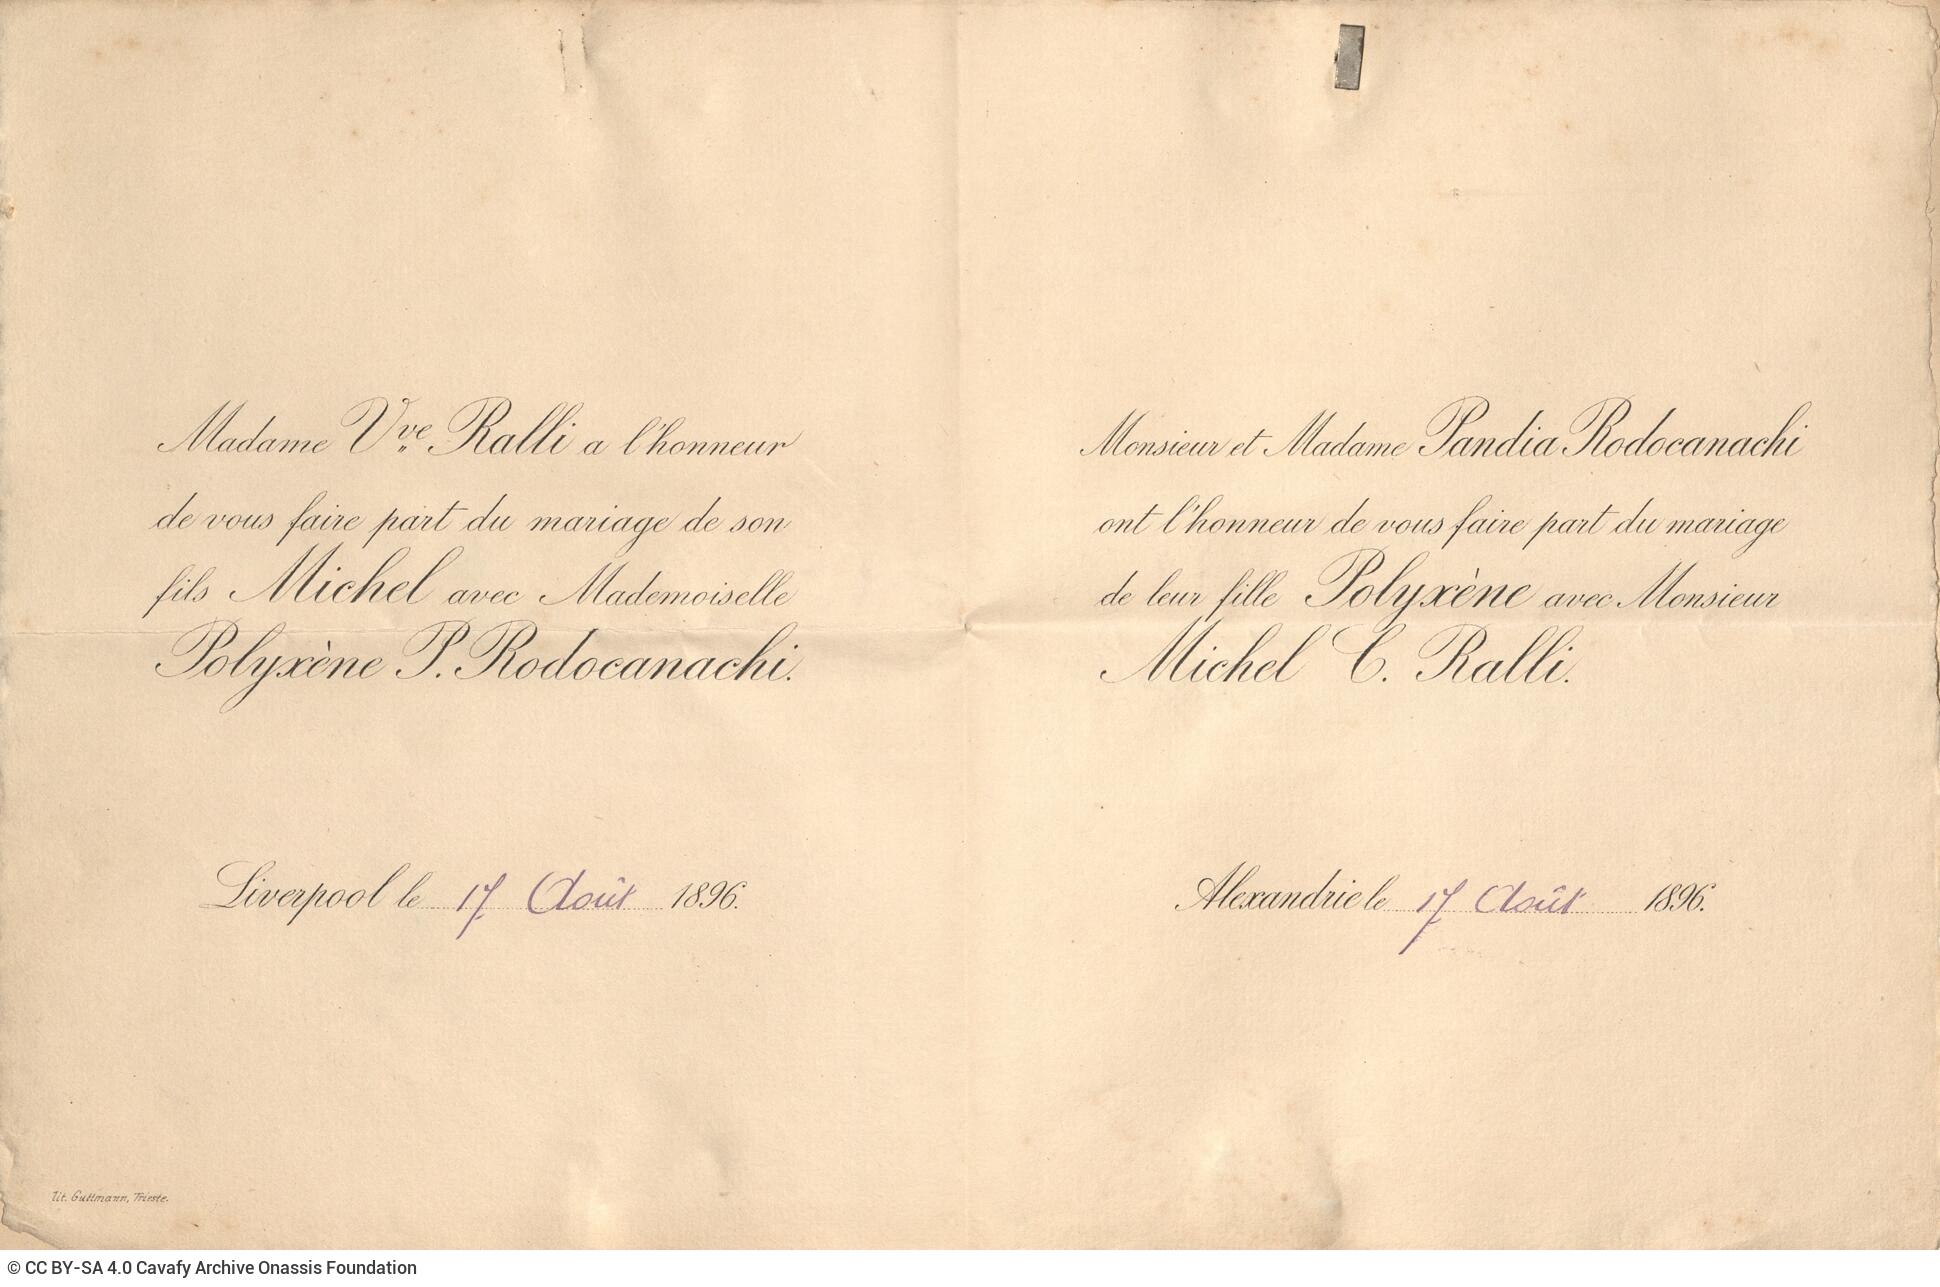 Madame Vve Ralli a l'honneur
de vous faire part du mariage de son
fils Michel avec Mademoiselle
Polyxène P. Rodocanachi.
Liverpool le 17 Août 1896.
Lit. Guttmann, Trieste.
Monsieur et Madame Pandia Rodocanachi
ont l'honneur de vous faire part du mariage
de leur fille Polyxène avec Monsieur
Michel C. Ralli.
Alexandrie le 17 Août 1896.
© CC BY-SA 4.0 Cavafy Archive Onassis Foundation